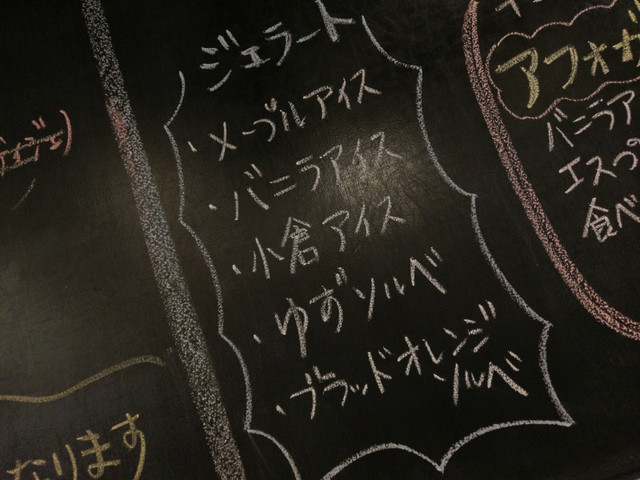 ジェラート
・メープルアイス
・バニラアイス
・小倉アイス
・ゆずソルベ
・ブラッドオレンジ
ソルベ
アフォガ
バニラア
エスプ
食べ
なります